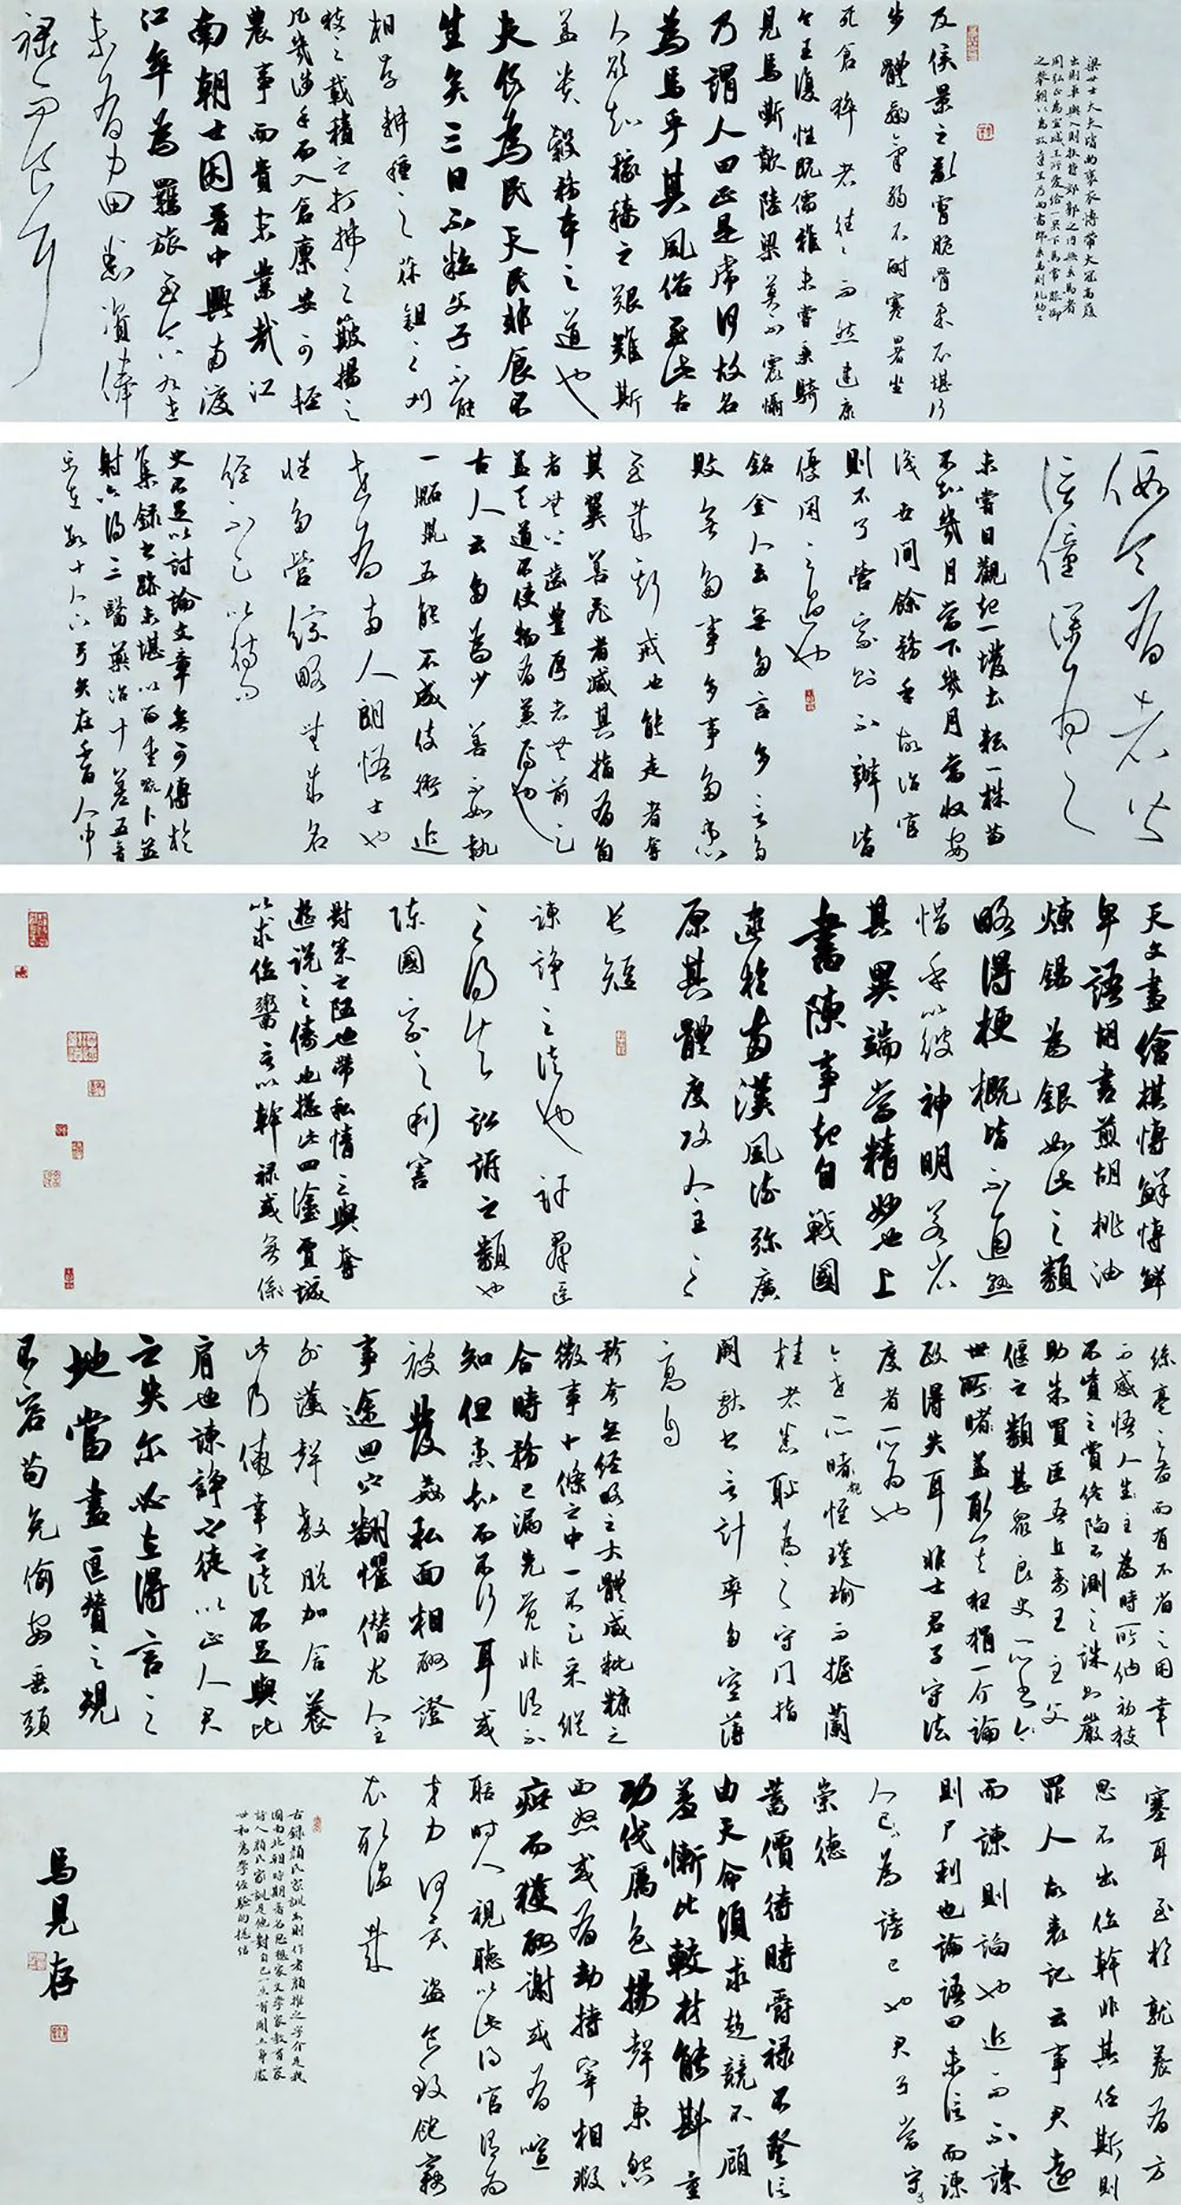 梁世士大夫皆尚褒衣博帶大冠高履
出則車輿入則扶持郊郭之內無乘馬者
周弘正為宣城王所愛給一果下馬常服御
之舉朝以為放達至乃尚書郎乘馬則糺劾之
及侯景之亂膚脆骨柔不堪行
步體羸氣弱不耐寒暑坐
死倉猝者往往而然建康
令王復性既儒雅未嘗乘騎
見馬嘶歕陸梁莫不震懾
乃謂人曰正是虎何故名
為馬乎其風俗至此古
人欲知稼穡之艱難斯
蓋貴穀務本之道也
夫食為民天民非食不
生矣三日不粒父子不能
相存耕種之茠鉏之刈
穫之載積之打拂之簸揚之
凡幾涉手而入倉廩安可輕
農事而貴末業哉江
南朝士因晉中興南渡
江卒為羈旅至今八九世
未有力田悉資俸
祿而食耳
假令有者皆
信僮僕為之
未嘗目觀起一墢土耘一株苗
不知幾月當下幾月當收安
識世間餘務乎故治官
則不了營家則不辦皆
優閑之過也
銘金人云無多言多言多
敗無多事多事多患
至哉斯戒也能走者奪
其翼善飛者減其指有角
者無上齒豐厚者無前足
蓋天道不使物有兼焉也
古人云多為少善不如執
一鼫鼠五能不成伎術近
世有兩人朗悟士也
性多營綜略無成名
經不足以待問
史不足以討論文章無可傳於
集錄書跡未堪以留愛翫卜筮
射六得三醫藥治十差五音
樂在數十人下弓矢在千百人中
天文畫繪棋博鮮博鮮
卑語胡書煎胡桃油
煉錫為銀如此之類
略得梗概皆不通熟
惜乎以彼神明若省
其異端當精妙也上
書陳事起自戰國
逮於兩漢風流彌廣
原其體度攻人主之
長短
諫諍之徒也訐群臣
之得失訟訴之類也
陳國家之利害
對策之伍也帶私情之與奪
遊說之儔也總此四塗賈誠
以求位鬻言以幹祿或無係
絲毫之益而有不省之困幸
而感悟人主為時所納初獲
不貲之賞終陷不測之誅則嚴
助朱買臣吾丘壽王主父
偃之類甚眾良史所書
世所睹蓋取其狂狷一介論
政得失耳非士君子守法
度者所為也
今世所睹懷瑾瑜而握蘭
桂者悉恥為之守門指
闕獻書言計率多空薄
高自
矜夸無經略之大體咸秕糠之
微事十條之中一不足采縱
合時務已漏先覺非謂不
知但患知而不行耳或
被發姦私面相酬證
事途迴穴翻懼僭尤人主
外護聲教脫加含養
此乃僥幸之徒不足與比
肩也諫諍之徒以正人君
之失爾必在得言之
地當盡匡贊之規
不容苟免偷安垂頭
塞耳至於就養有方
思不出位幹非其任斯則
罪人故表記云事君遠
而諫則諂也近而不諫
則尸利也論語曰未信而諫
人以為謗己也君子當守
崇德
蓄價待時爵祿不登信
由天命須求趨競不顧
羞慚比較材能斟量
功伐厲色揚聲東怨
西怒或有劫持宰相瑕
疵而獲酬謝或有喧
聒時人視聽以此得官謂為
才力何異盜食致飽竊
衣取溫哉
馬見存